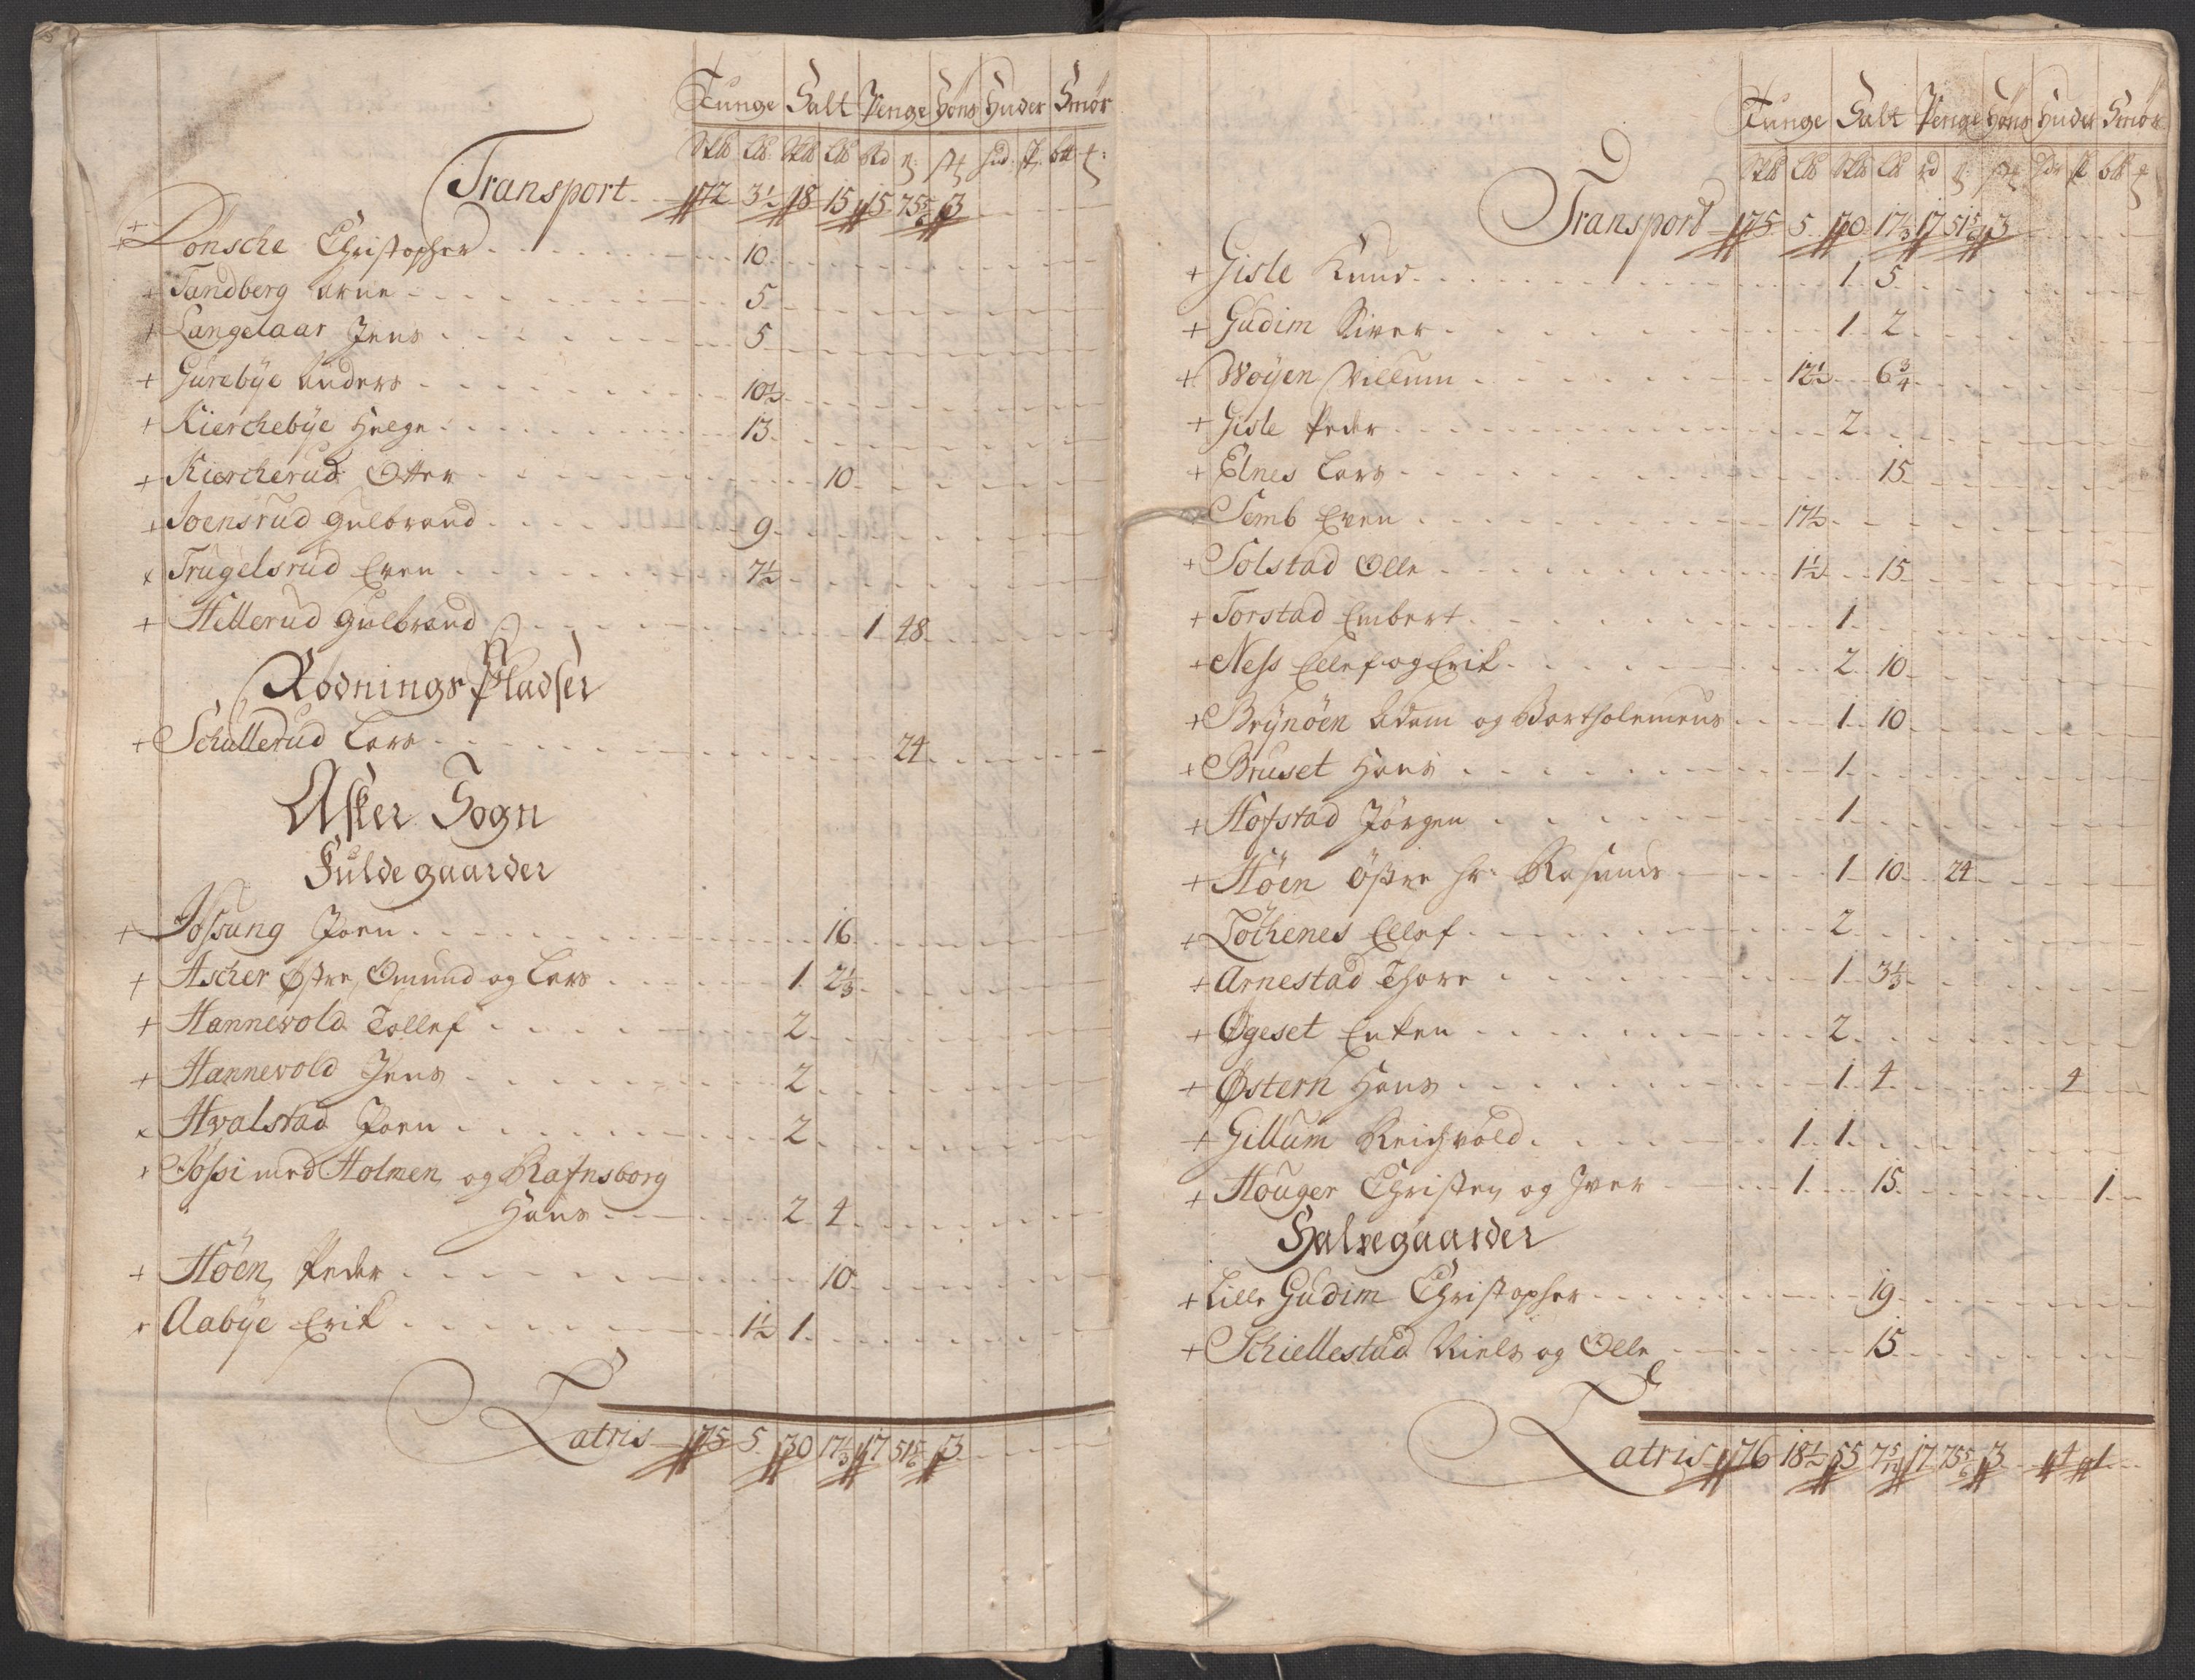 Tunge Salt Penge Høns Huder Smør
Transport 172 3½ 18 15 15 75 5/6 3
Donsche Christopher 10
+ Tandberg Arne 5
+ Langelaar Jens 5
+ Gurebÿe Anders 10½
+ Kierchebÿe Helge 13
+ Kiercherud Otter 10
+ Joensrud Gulbrand 9
x Trugelsrud Even 7½
+ Hellerud Gulbrand 1 48
Rødnings Pladser
+ Schullerud Lars 24
Asker Sogn
Fulde gaarder
+ Jossung Joen 16
+ Ascher Østre, Omund og Lars 1 2⅓
+ Hannevold Tollef 2
+ Hannevold Jens 2
x Hvalstad Joen 2
Jossi med Holmen og Rafnsborg
Hans 2 4
+ Høen Peder 10
Aabÿe Erik 1½ 1
Latris 175 5 30 17⅓ 17 51 5/6 3
Tunge Salt Penge Høns Huder Smør
Transport 175 5 30 17⅓ 17 51 5/6 3
+ Gisle Knud 1 5
+ Gudim Siver 1 2
+ Woÿen Villum 12½ 6¾
+ Gisle Peder 2
+ Elnes Lars 15
Semb Even 17½
+ Solstad Olle 1½ 15
+ Torstad Embert 1
+ Ness Ellef og Erik 2 10
+ Brÿnøen Adam og Bartholemeus 1 10
+ Bruset Hans 1
+ Hofstad Jørgen 1
+ Høen Østre hr: 1 10 24
+ Løchenes Ellef 2
+ Arnestad Thore 1 3⅓
+ Øgeset Enken 2
+ Østern Hans 1 4 4
+ Gillum Reichvold 1 1
+ Houger Christen og Iver 1 15 1
Halve gaarder
+ Lille Gudim Christopher 19
+ Schiellestad Niels og Olle 15
Latris 176 18½ 55 7 5/12 17 75 5/6 3 4 1